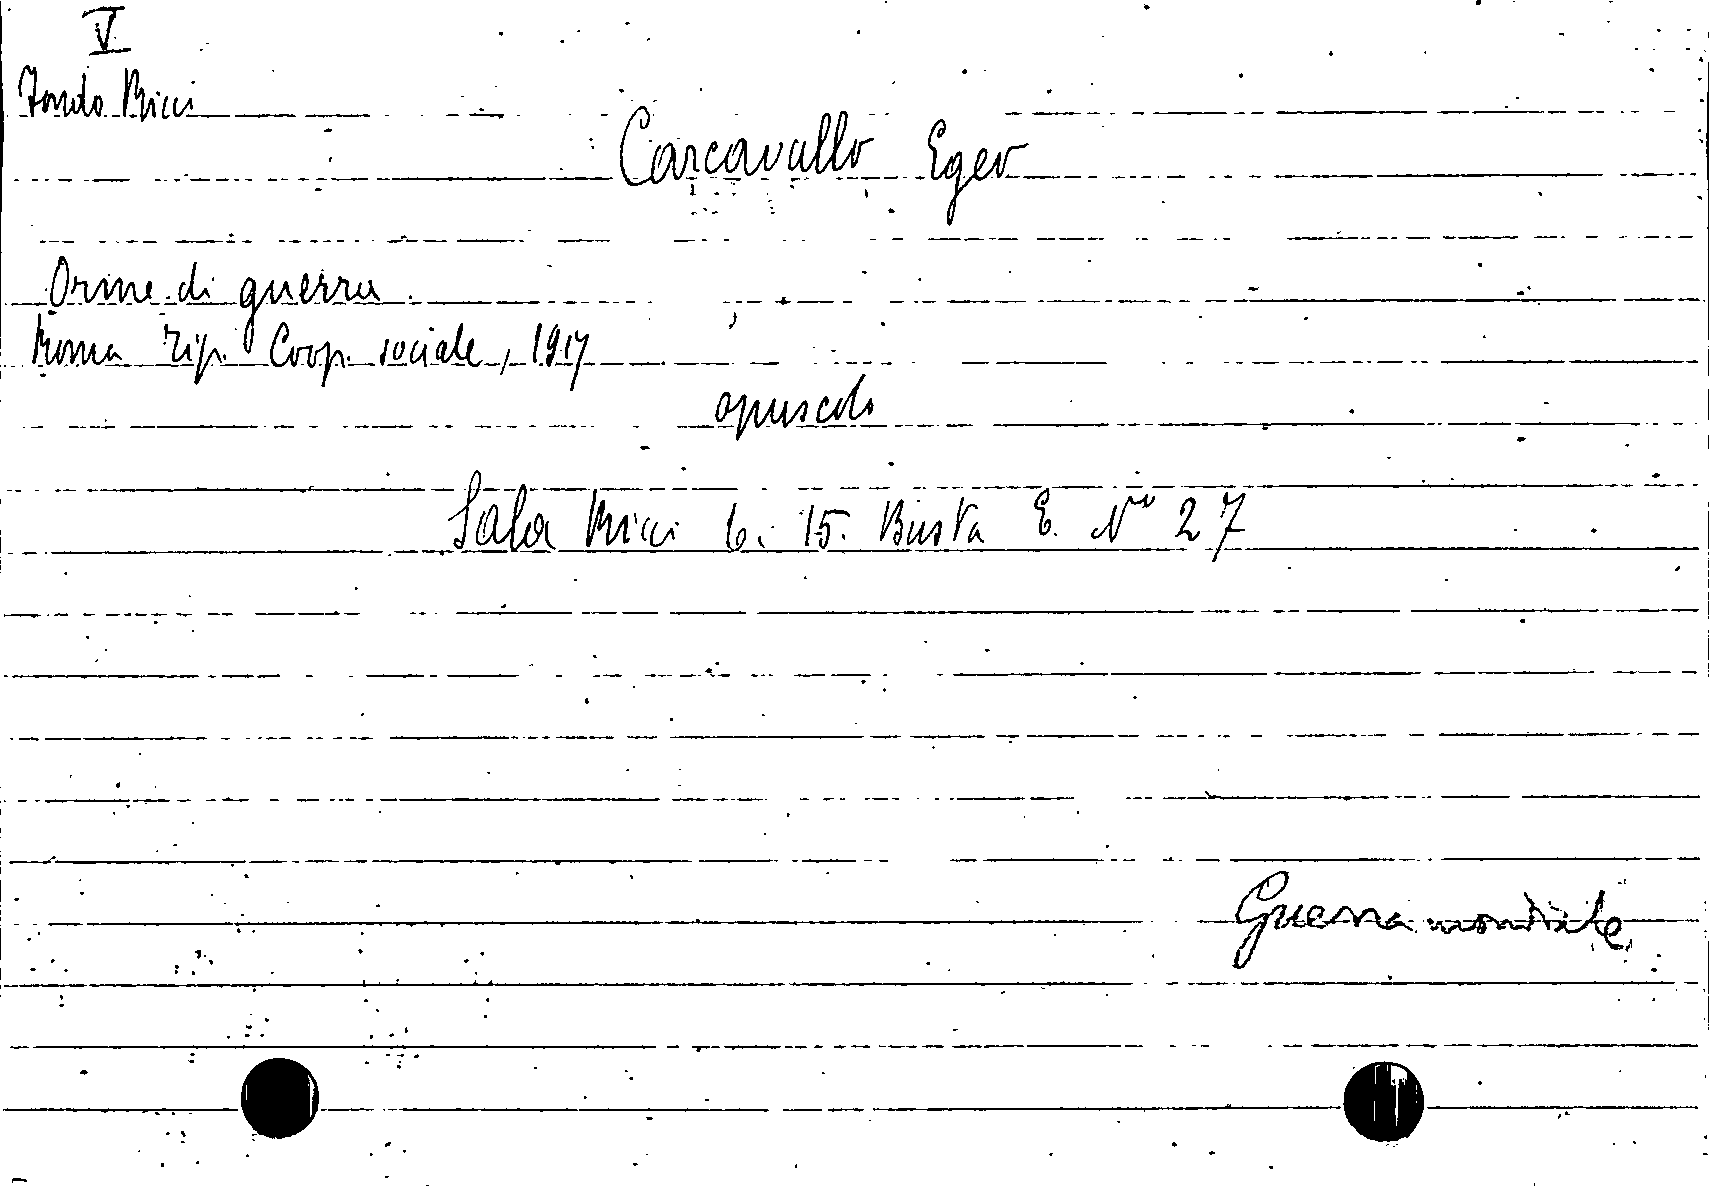 V
Fondo Ricci
Carcavallo Egeo
Orme di guerra
Roma Tip. Coop. sociale, 1917
opuscolo
Sala Ricci 6. 15. Busta E. N° 27
Guerra mondiale